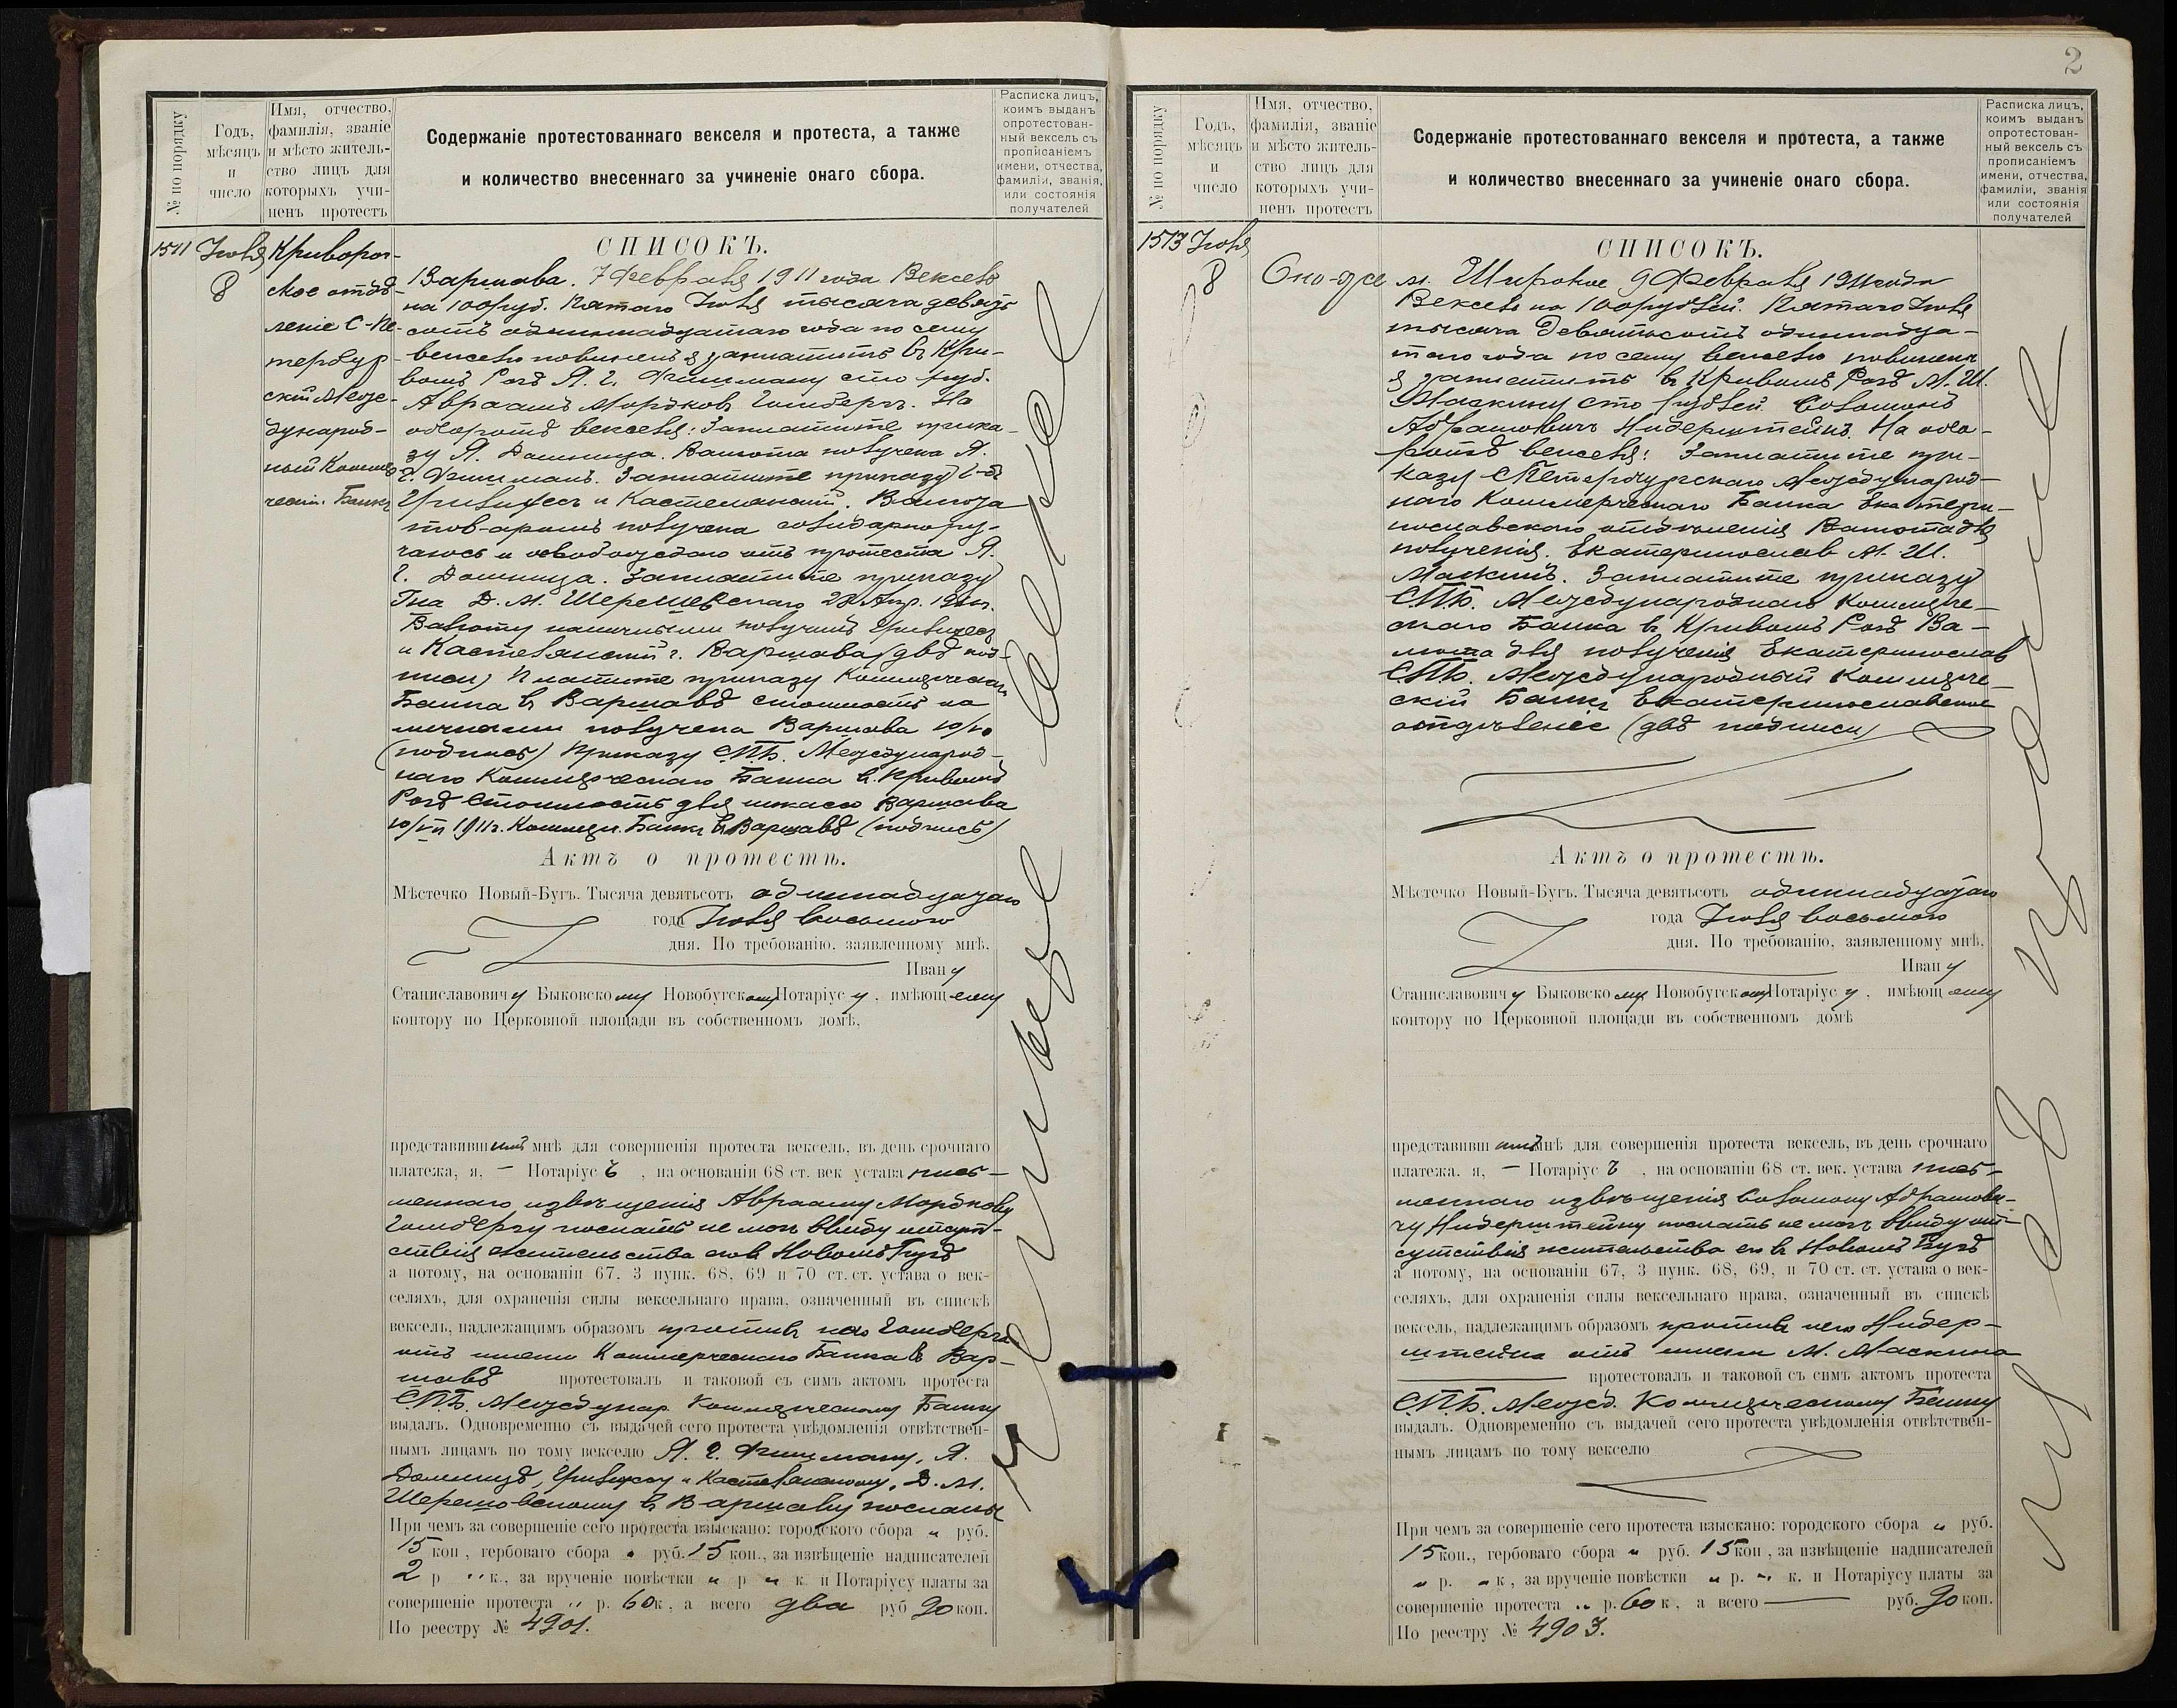 № по порядку
Годъ,
мѣсяцъ
и
число
Имя, отчество,
фамилія, званіе
и мѣсто житель-
ство лицъ для
которыхъ учи-
ненъ протестъ
Содержаніе протестованнаго векселя и протеста, а также
и количество внесеннаго за учиненіе онаго сбора.
Расписка лицъ,
коимъ выданъ
опротестован-
ный вексель съ
прописаніемъ
имени, отчества,
фамиліи, званія,
или состоянія
получателей
1511 Іюля
8
Криворог-
ское отдѣ-
леніе С-Пе-
тербур-
скій Меж-
дународ-
ный Коммер
ческій Банкъ
СПИСОКЪ.
Варшава. 7 Февраля 1911 года Вексель
на 100 руб. Пятаго Іюля тысяча девять
сотъ одиннадцатаго года по сему
векселю повиненъ я заплатить въ Кри-
вомъ Рогѣ Я. Г. Фишману сто руб.
Авраамъ Мордковъ Гомбергъ. На
оборотѣ векселя: Заплатите прика-
зу Я. Валюта получена Я.
Г. Фишманъ. Заплатите приказу
и Кастелянскій. Валюта
товаромъ получена солидарно ру-
чаюсь и освобождаю отъ протеста Я.
Г. Заплатите приказу
Гна Д. М. Шерешевскаго 28 Апр. 1911 г.
Валюту наличными получилъ
и Кастелянскій г. Варшава (двѣ под-
писи) Платите приказу Коммерческаго
Банка въ Варшавѣ стоимость на
личными получена Варшава
(подпись) Приказу С.П.Б. Международ-
наго Коммерческаго Банка въ Кривомъ
Рогѣ Стоимость для инкассо Варшава
1911 г. Коммерч. Банкъ въ Варшавѣ (подпись)
Актъ о протестѣ.
Мѣстечко Новый-Бугъ. Тысяча девятьсотъ одиннадцатаго
года Іюля восьмого
дня. По требованію, заявленному мнѣ,
Ивану
Станиславовичу Быковскому Новобугскому Нотаріусу, имѣющему
контору по Церковной площади въ собственномъ домѣ,
представившимъ мнѣ для совершенія протеста вексель, въ день срочнаго
платежа, я, — Нотаріусъ, на основаніи 68 ст. век устава пись-
меннаго извѣщенія Аврааму Мордкову
Гомбергу послать не могъ ввиду отсут-
ствія жительства его въ Новомъ Бугѣ
а потому, на основаніи 67, 3 пунк. 68, 69 и 70 ст. ст. устава о век-
селяхъ, для охраненія силы вексельнаго права, означенный въ спискѣ
вексель, надлежащимъ образомъ противъ него Гомберга
отъ имени Коммерческаго Банка въ Вар-
шавѣ протестовалъ и таковой съ симъ актомъ протеста
С.П.Б. Междунар. Коммерческому Банку
выдалъ. Одновременно съ выдачей сего протеста увѣдомленія отвѣтствен-
нымъ лицамъ по тому векселю Я. Г. Фишману, Я.
и Кастелянскому, Д. М.
Шерешевскому въ Варшаву посланы
При чемъ за совершеніе сего протеста взыскано: городского сбора „ руб.
15 коп, гербоваго сбора „ руб. 15 коп., за извѣщеніе надписателей
2 р „ к., за врученіе повѣстки „ р „ к. и Нотаріусу платы за
совершеніе протеста „ р. 60 к, а всего два руб 90 коп.
По реестру № 4901.
2
№ по порядку
Годъ,
мѣсяцъ
и
число
Имя, отчество,
фамилія, званіе
и мѣсто житель-
ство лицъ для
которыхъ учи-
ненъ протестъ
Содержаніе протестованнаго векселя и протеста, а также
и количество внесеннаго за учиненіе онаго сбора.
Расписка лицъ,
коимъ выданъ
опротестован-
ный вексель съ
прописаніемъ
имени, отчества,
фамиліи, званія
или состоянія
получателей
1513 Іюля
8
Оно-же
СПИСОКЪ.
м. Широкое 9 Февраля 1911 года
Вексель на 100 рублей. Пятаго Іюля
тысяча девятьсотъ одиннадца-
таго года по сему векселю повиненъ
я заплатить въ Кривомъ Рогѣ М. Ш.
Маскину сто рублей. Соломонъ
Абрамовичъ Нидерштейнъ. На обо-
ротѣ векселя: Заплатите при-
казу С Петербургскаго Международ-
наго Коммерческаго Банка Екатери-
нославскаго отдѣленія Валюта для
полученія. Екатеринослав М. Ш.
Маскинъ. Заплатите приказу
С.П.Б. Международнаго Коммерче-
скаго Банка въ Кривомъ Рогѣ Ва-
люта для полученія Екатеринослав
С.П.Б. Международный Коммерче-
скій Банкъ Екатеринославское
отдѣленіе (двѣ подписи)
Актъ о протестѣ.
Мѣстечко Новый-Бугъ. Тысяча девятьсотъ одиннадцатаго
года Іюля восьмого
дня. По требованію, заявленному мнѣ,
Ивану
Станиславовичу Быковскому Новобугскому Нотаріусу, имѣющему
контору по Церковной площади въ собственномъ домѣ
представившимъ мнѣ для совершенія протеста вексель, въ день срочнаго
платежа, я, — Нотаріусъ, на основаніи 68 ст. век. устава пись-
меннаго извѣщенія Соломону Абрамови-
чу Нидерштейну послать не могъ ввиду от-
сутствія жительства его въ Новомъ Бугѣ
а потому, на основаніи 67, 3 пунк. 68, 69, и 70 ст. ст. устава о век-
селяхъ, для охраненія силы вексельнаго права, означенный въ спискѣ
вексель, надлежащимъ образомъ противъ него Нидер-
штейна отъ имени М. Маскина
протестовалъ и таковой съ симъ актомъ протеста
С.П.Б. Межд. Коммерческому Банку
выдалъ. Одновременно съ выдачей сего протеста увѣдомленія отвѣтствен-
нымъ лицамъ по тому векселю
При чемъ за совершеніе сего протеста взыскано: городского сбора „ руб.
15 коп., гербоваго сбора „ руб. 15 коп, за извѣщеніе надписателей
„ р. „ к, за врученіе повѣстки „ р. „ к. и Нотаріусу платы за
совершеніе протеста „ р. 60 к, а всего — руб. 90 коп.
По реестру № 4903.